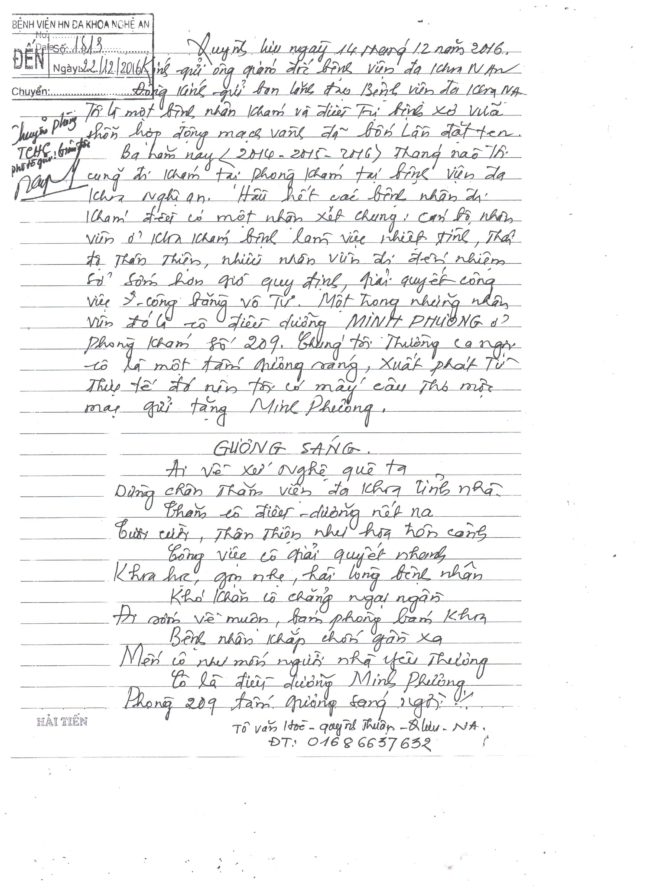 BỆNH VIỆN HN ĐA KHOA NGHỆ AN
ĐẾN
Số: 1613
Ngày 22/12/2016
Chuyển:
Chuyển phòng
TCHC
Quỳnh lưu ngày 14 tháng 12 năm 2016.
Kính gửi ông giám đốc bệnh viện đa khoa N An
Đồng kính gửi ban lãnh đạo Bệnh viện đa khoa NA
Tôi là một bệnh nhân khám và điều trị bệnh xơ vữa
hỗn hợp động mạch vành đã bốn lần đặt ten.
Ba năm nay (2014-2015-2016) tháng nào tôi
cũng đi khám tại phòng khám tại bệnh viện đa
khoa Nghị an. Hầu hết các bệnh nhân đi
khám đều có một nhận xét chung: cán bộ nhân
viên ở khoa khám bệnh làm việc nhiệt tình, thái
độ thân thiện, nhiều nhân viên đi đến nhiệm
sở sớm hơn giờ quy định, giải quyết công
việc công bằng vô tư. Một trong những nhân
viên đó là cô điều dưỡng MINH PHƯƠNG ở
phòng khám số 209. Chúng tôi thường ca ngợi
cô là một tấm gương sáng, xuất phát từ
thực tế đó nên tôi có mấy câu thơ mộc
mạc gửi tặng Minh Phương.
GƯƠNG SÁNG.
Ai về xứ nghệ quê ta
Dừng chân thăm viện đa khoa tỉnh nhà
Thăm cô điều-dưỡng nết na
Tươi cười, thân thiện như hoa trên cành
Công việc cô giải quyết nhanh
Khoa học, gọn nhẹ, hài lòng bệnh nhân
Khó khăn cô chẳng ngại ngần
Đi sớm về muộn, bám phòng bám khoa
Bệnh nhân khắp chốn gần xa
Mến cô như mến người nhà yêu thương
Cô là điều dưỡng Minh Phương
Phòng 209 tấm gương sáng ngời !!!
HẢI TIẾN
Tô văn Hoè - quỳnh Thuận - Q lưu - NA.
ĐT: 01686637632